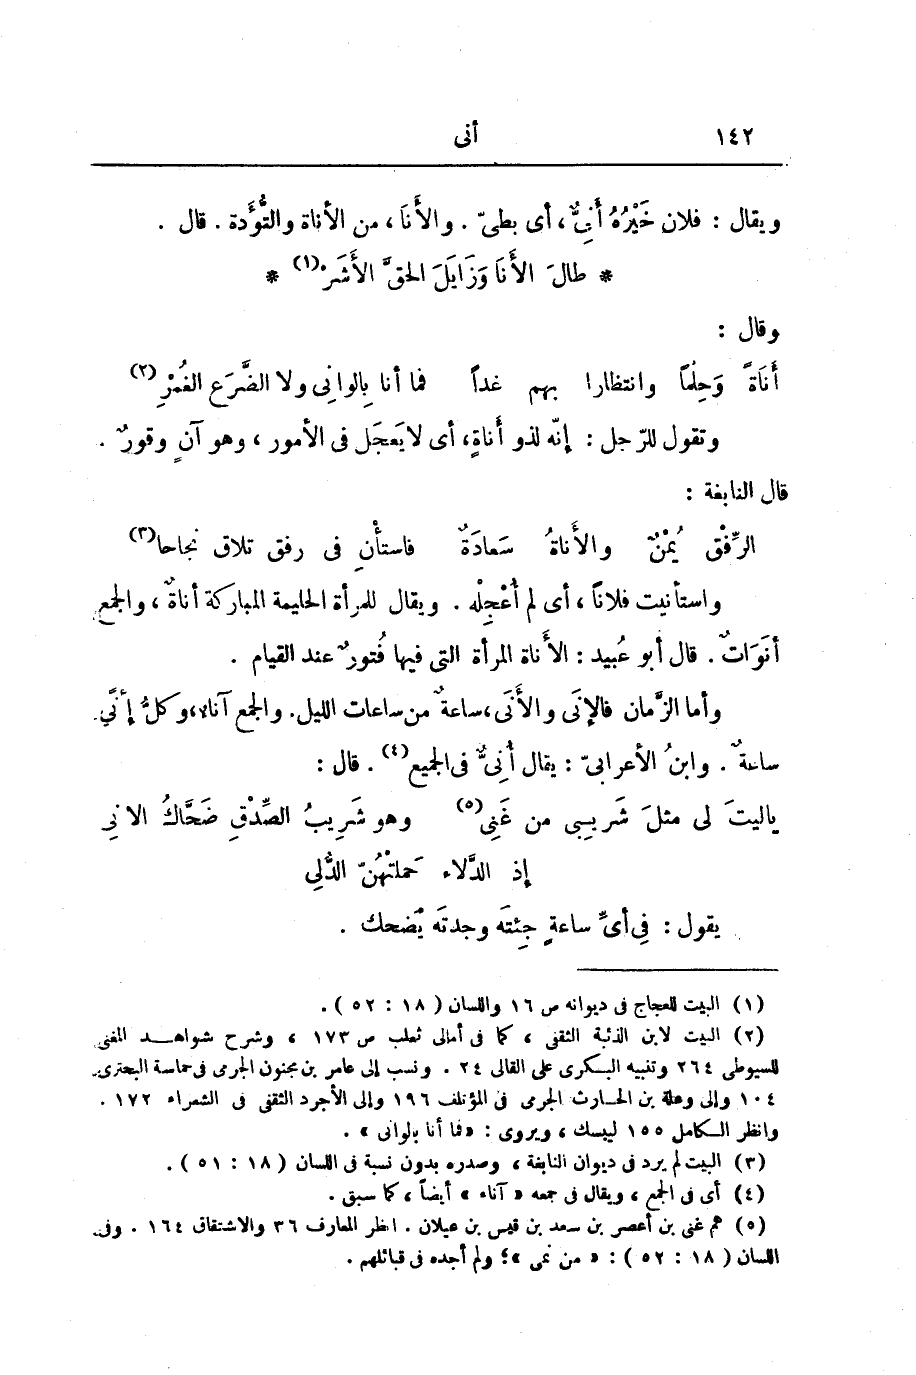 ١٤٢ أنى
ويقال : فلان خَيْرُهُ أَنِيٌّ ، أى بطىّ . والأَنَا ، من الأناة والتُّؤَدة . قال .
* طالَ الأَنَا وَزَايَلَ الحقَّ الأشَرْ(١) *
وقال :
أَنَاةً وَحِلْمًا وانتظارا بهم غداً فما أنا بِالوانِى ولا الضَّرَعِ الغُمْرِ(٢)
وتقول للرّجل : إنّه لذو أَناةٍ، أى لا يَعجَل فى الأمور ، وهو آنٍ وقورٌ .
قال النابغة :
الرِّفْق يُمْنٌ والأَناةُ سَعادَةٌ فاستأْنِ فى رفق تلاق نجاحا(٣)
واستأنيت فلاناً ، أى لم أُعْجِلْه . ويقال للمرأة الحليمة المباركة أناةٌ ، والجمع
أنَوَاتٌ . قال أبو عُبيد : الأَناة المرأة التى فيها فُتورٌ عند القيام .
وأما الزَّمان فالإنَى والأَنَى ، ساعةٌ من ساعات الليل. والجمع آناء، وكلُّ إنًى
ساعةٌ . وابنُ الأعرابىّ : يقال أُنِىٌّ فى الجميع(٤) . قال :
ياليتَ لى مثلَ شَرِيبِى من غَنِى(٥) وهو شَرِيبُ الصِّدْقِ ضَحَّاكُ الانِى
إذ الدَّلاء حَملتْهُنّ الدُّلِى
يقول : فى أىِّ ساعةٍ جِئتَه وجدتَه يَضحك .
(١) البيت للعجاج فى ديوانه ص ١٦ واللسان ( ١٨ : ٥٢ ) .
(٢) البيت لابن الذئبة الثقفى ، كما فى أمالى ثعلب ص ١٧٣ ، وشرح شواهد المغنى
للسيوطى ٢٦٤ وتنبيه البكرى على القالى ٢٤ . ونسب إلى عامر بن مجنون الجرمى فى حماسة البحترى
١٠٤ وإلى وعلة بن الحارث الجرمى فى المؤتلف ١٩٦ وإلى الأجرد الثقفى فى الشعراء ١٧٢ .
وانظر الكامل ١٥٥ ليبسك ، ويروى : «فما أنا بالوانى » .
(٣) البيت لم يرد فى ديوان النابغة ، وصدره بدون نسبة فى اللسان ( ١٨ : ٥١ ) .
(٤) أى فى الجمع ، ويقال فى جمعه « آناء » أيضاً ، كما سبق .
(٥) هم غنى بن أعصر بن سعد بن قيس بن عيلان . انظر المعارف ٣٦ والاشتقاق ١٦٤ . وفى
اللسان ( ١٨ : ٥٢ ) : « من نمى »؛ ولم أجده فى قبائلهم .